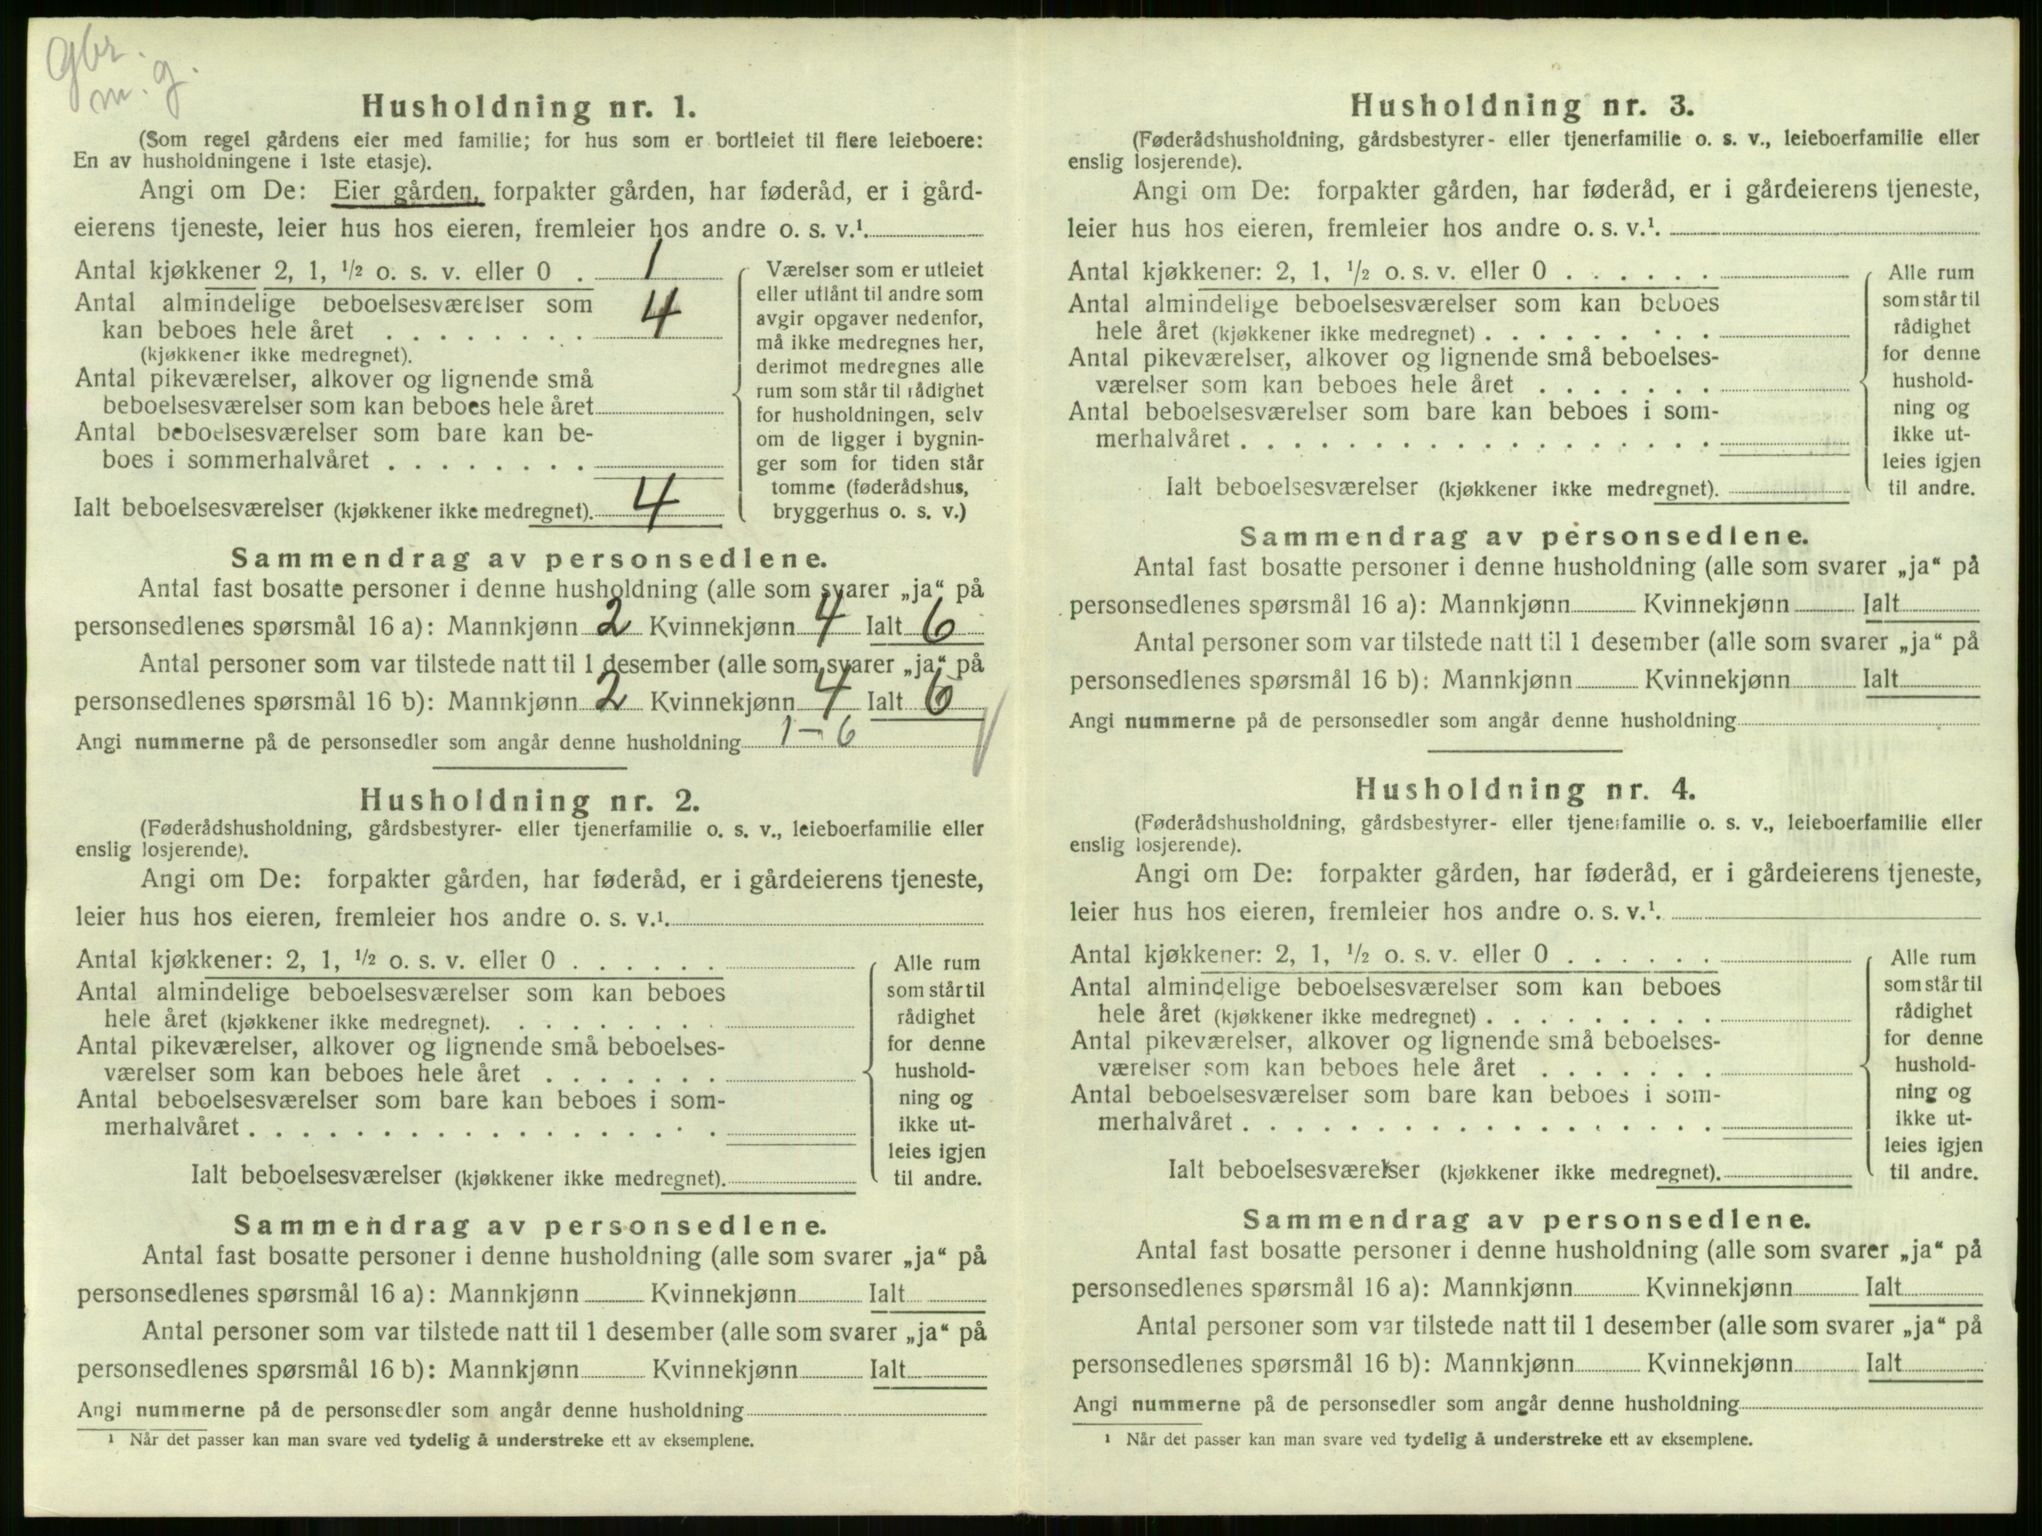 gbr.
m. g.
Husholdning nr. 1.
(Som regel gårdens eier med familie; for hus som er bortleiet til flere leieboere:
En av husholdningene i 1ste etasje).
Angi om De: Eier gården, forpakter gården, har føderåd, er i gård-
eierens tjeneste, leier hus hos eieren, fremleier hos andre o. s. v.¹.
Antal kjøkkener 2, 1, 1/2 o. s. v. eller 0 . 1
Antal almindelige beboelsesværelser som
kan beboes hele året . . . . . . . . 4
(kjøkkener ikke medregnet).
Antal pikeværelser, alkover og lignende små
beboelsesværelser som kan beboes hele året
Antal beboelsesværelser som bare kan be-
boes i sommerhalvåret . . . . . . . .
Ialt beboelsesværelser (kjøkkener ikke medregnet). 4
Værelser som er utleiet
eller utlånt til andre som
avgir opgaver nedenfor,
må ikke medregnes her,
derimot medregnes alle
rum som står til rådighet
for husholdningen, selv
om de ligger i bygnin-
ger som for tiden står
tomme (føderådshus,
bryggerhus o. s. v.)
Sammendrag av personsedlene.
Antal fast bosatte personer i denne husholdning (alle som svarer „ja“ på
personsedlenes spørsmål 16 a): Mannkjønn 2 Kvinnekjønn 4 Ialt 6
Antal personer som var tilstede natt til 1 desember (alle som svarer „ja“ på
personsedlenes spørsmål 16 b): Mannkjønn 2 Kvinnekjønn 4 Ialt 6
Angi nummerne på de personsedler som angår denne husholdning 1-6
Husholdning nr. 2.
(Føderådshusholdning, gårdsbestyrer- eller tjenerfamilie o. s. v., leieboerfamilie eller
enslig losjerende).
Angi om De: forpakter gården, har føderåd, er i gårdeierens tjeneste,
leier hus hos eieren, fremleier hos andre o. s. v.¹.
Antal kjøkkener: 2, 1, 1/2 o. s. v. eller 0 . . . . . .
Antal almindelige beboelsesværelser som kan beboes
hele året (kjøkkener ikke medregnet). . . . . . . . .
Antal pikeværelser, alkover og lignende små beboelses-
værelser som kan beboes hele året . . . . . . .
Antal beboelsesværelser som bare kan beboes i som-
merhalvåret . . . . . . . . . . . . . . . . . .
Ialt beboelsesværelser (kjøkkener ikke medregnet).
Alle rum
som står til
rådighet
for denne
hushold-
ning og
ikke ut-
leies igjen
til andre.
Sammendrag av personsedlene.
Antal fast bosatte personer i denne husholdning (alle som svarer „ja“ på
personsedlenes spørsmål 16 a): Mannkjønn Kvinnekjønn Ialt
Antal personer som var tilstede natt til 1 desember (alle som svarer „ja“ på
personsedlenes spørsmål 16 b): Mannkjønn Kvinnekjønn Ialt
Angi nummerne på de personsedler som angår denne husholdning
¹ Når det passer kan man svare ved tydelig å understreke ett av eksemplene.
Husholdning nr. 3.
(Føderådshusholdning, gårdsbestyrer- eller tjenerfamilie o. s. v., leieboerfamilie eller
enslig losjerende).
Angi om De: forpakter gården, har føderåd, er i gårdeierens tjeneste,
leier hus hos eieren, fremleier hos andre o. s. v.¹.
Antal kjøkkener: 2, 1, 1/2 o. s. v. eller 0 . . . . . .
Antal almindelige beboelsesværelser som kan beboes
hele året (kjøkkener ikke medregnet) . . . . . . . . .
Antal pikeværelser, alkover og lignende små beboelses-
værelser som kan beboes hele året . . . . . . .
Antal beboelsesværelser som bare kan beboes i som-
merhalvåret . . . . . . . . . . . . . . . . . .
Ialt beboelsesværelser (kjøkkener ikke medregnet).
Alle rum
som står til
rådighet
for denne
hushold-
ning og
ikke ut-
leies igjen
til andre.
Sammendrag av personsedlene.
Antal fast bosatte personer i denne husholdning (alle som svarer „ja“ på
personsedlenes spørsmål 16 a): Mannkjønn Kvinnekjønn Ialt
Antal personer som var tilstede natt til 1 desember (alle som svarer „ja“ på
personsedlenes spørsmål 16 b): Mannkjønn Kvinnekjønn Ialt
Angi nummerne på de personsedler som angår denne husholdning
Husholdning nr. 4.
(Føderådshusholdning, gårdsbestyrer- eller tjenerfamilie o. s. v., leieboerfamilie eller
enslig losjerende).
Angi om De: forpakter gården, har føderåd, er i gårdeierens tjeneste,
leier hus hos eieren, fremleier hos andre o. s. v.¹.
Antal kjøkkener: 2, 1, 1/2 o. s. v. eller 0 . . . . . .
Antal almindelige beboelsesværelser som kan beboes
hele året (kjøkkener ikke medregnet) . . . . . . . . .
Antal pikeværelser, alkover og lignende små beboelses-
værelser som kan beboes hele året . . . . . . .
Antal beboelsesværelser som bare kan beboes i som-
merhalvåret . . . . . . . . . . . . . . . . . .
Ialt beboelsesværelser (kjøkkener ikke medregnet).
Alle rum
som står til
rådighet
for denne
hushold-
ning og
ikke ut-
leies igjen
til andre.
Sammendrag av personsedlene.
Antal fast bosatte personer i denne husholdning (alle som svarer „ja“ på
personsedlenes spørsmål 16 a): Mannkjønn Kvinnekjønn Ialt
Antal personer som var tilstede natt til 1 desember (alle som svarer „ja“ på
personsedlenes spørsmål 16 b): Mannkjønn Kvinnekjønn Ialt
Angi nummerne på de personsedler som angår denne husholdning
¹ Når det passer kan man svare ved tydelig å understreke ett av eksemplene.